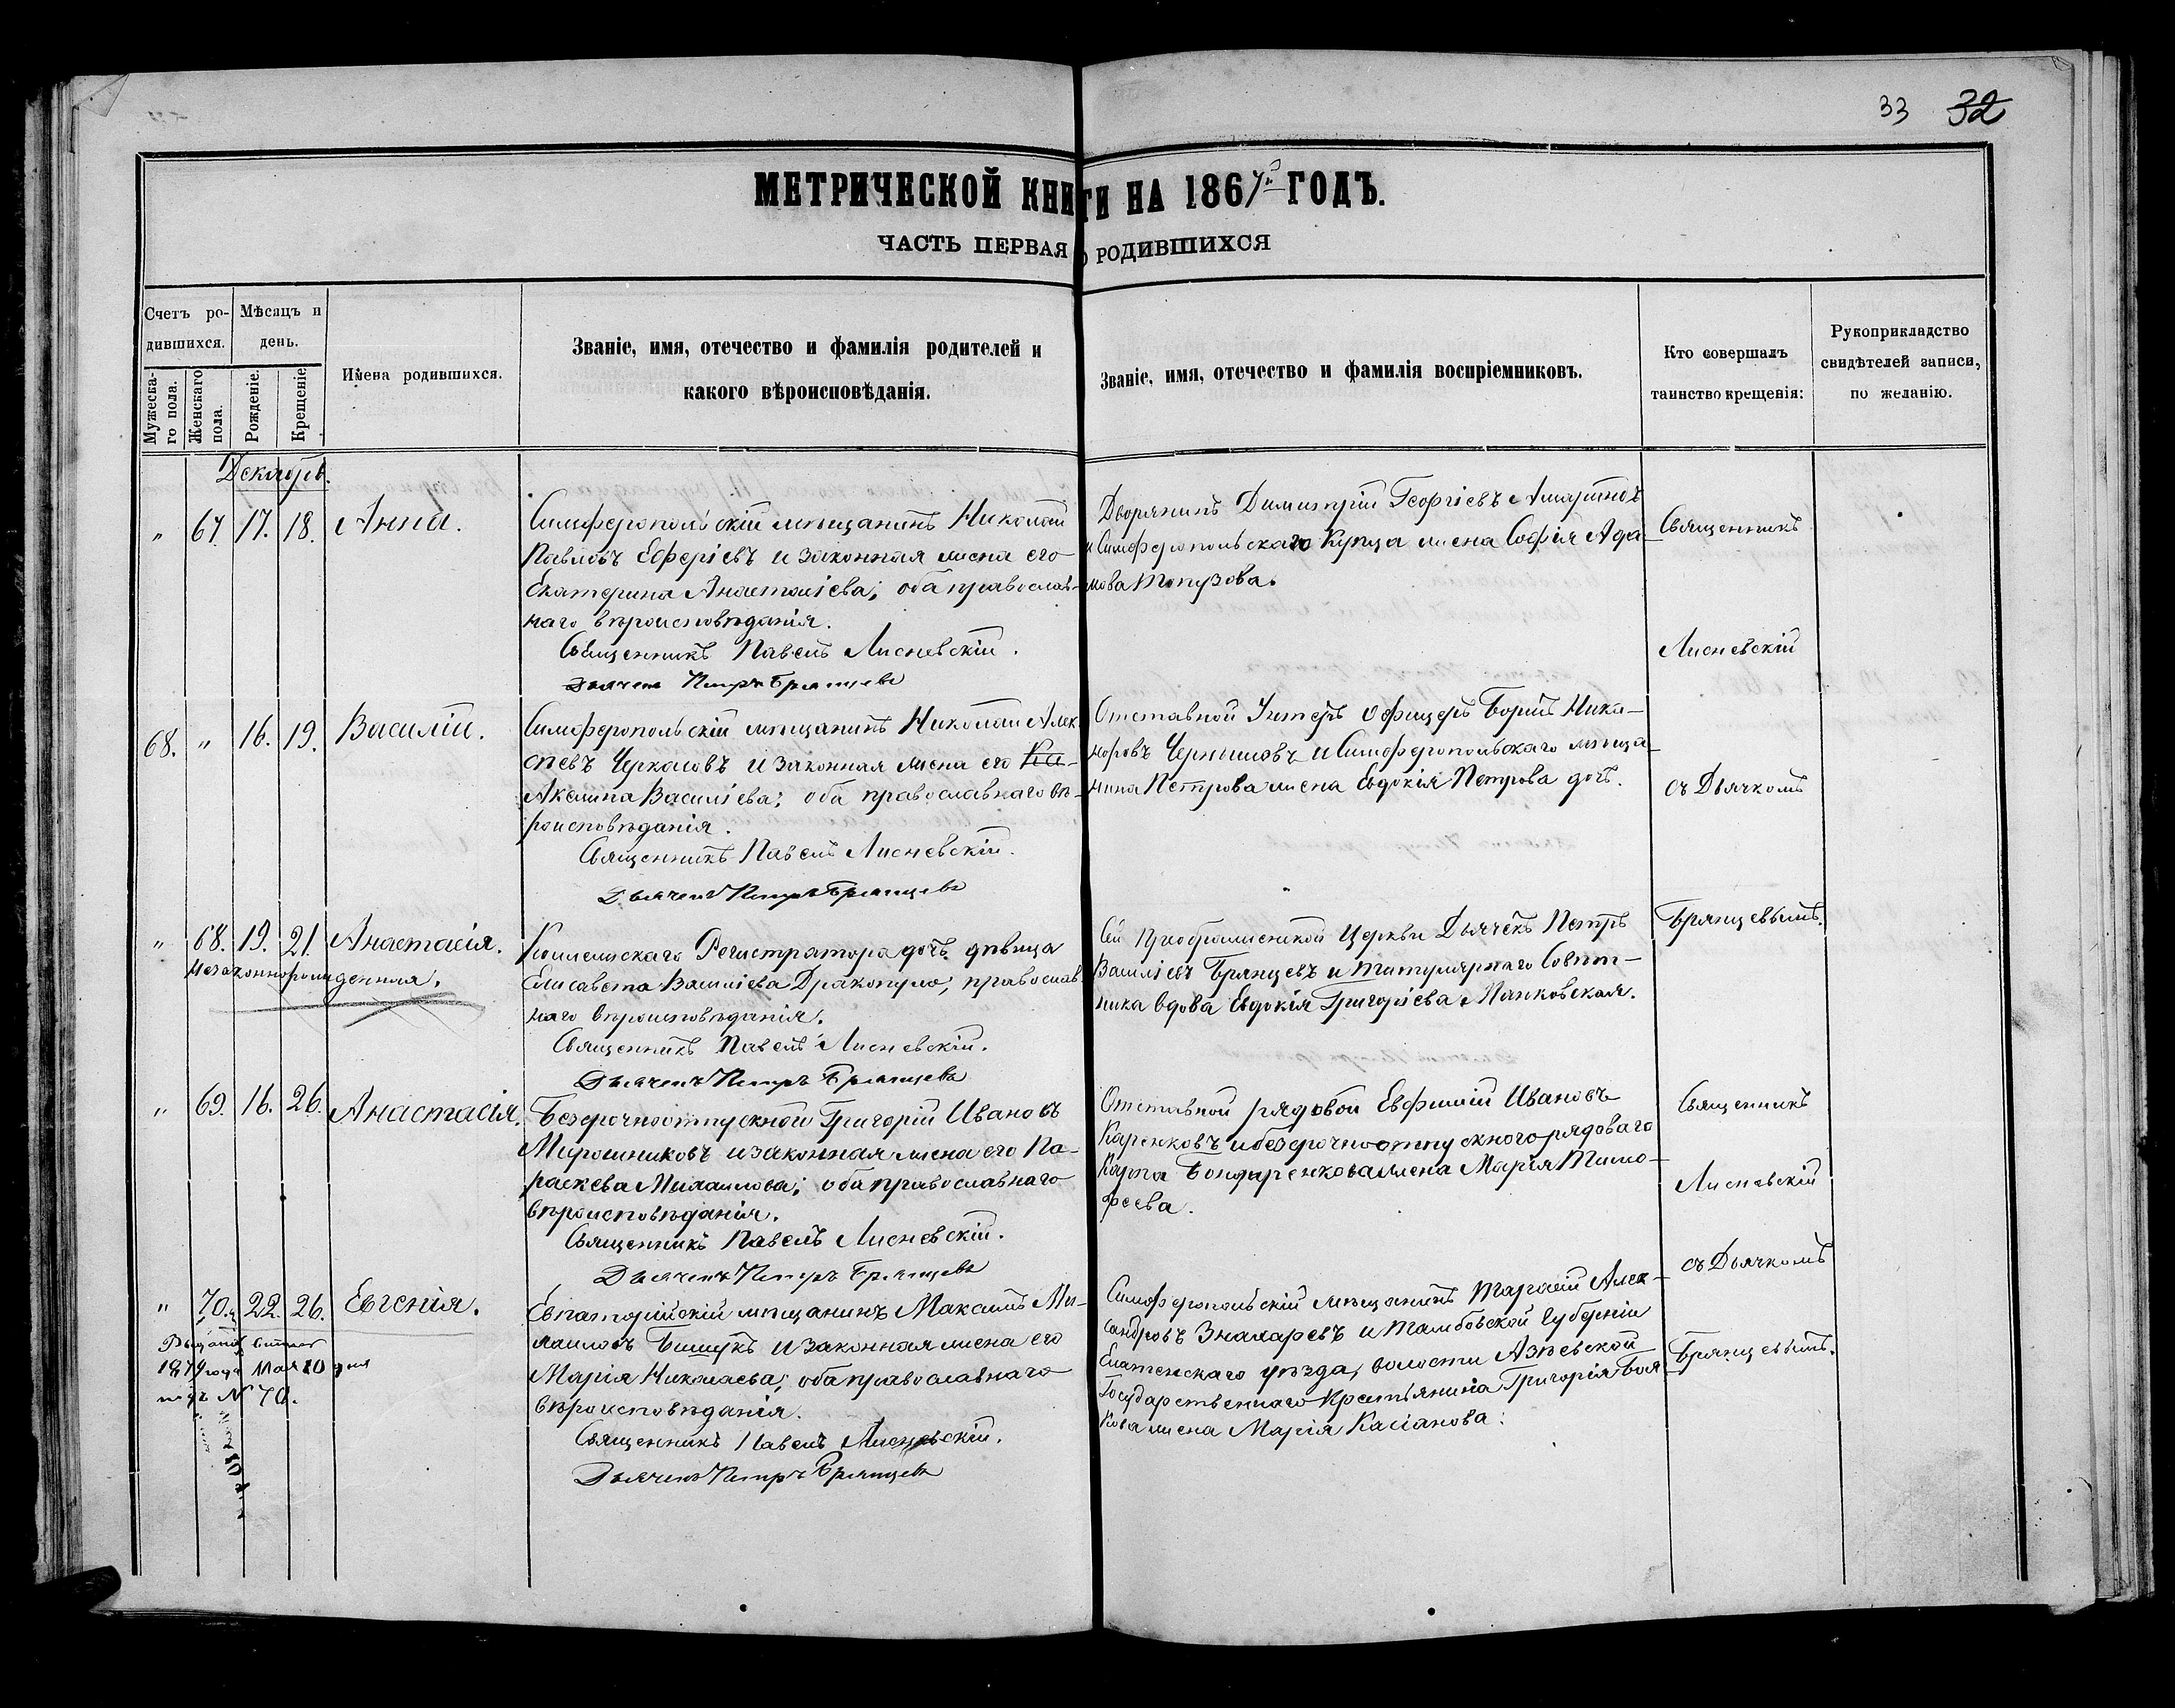 33 32
МЕТРИЧЕСКОЙ КНИГИ НА 1867й ГОДЪ.
ЧАСТЬ ПЕРВАЯ О РОДИВШИХСЯ
Счетъ родившихся.
Мужескаго пола.
Женскаго пола.
Мѣсяцъ и день.
Рожденіе.
Крещеніе
Имена родившихся.
Званіе, имя, отечество и фамилія родителей и
какого вѣроисповѣданія.
Званіе, имя, отечество и фамилія воспріемниковъ.
Кто совершалъ
таинство крещенія:
Рукоприкладство
свидѣтелей записи,
по желанію.
Декабрь.
" 67. 17. 18. Анна.
Симферопольскій мѣщанинъ Николай
Павловъ Еферіевъ и законная жена его
Екатерина Анастасіева; оба православ-
наго вѣроисповѣданія.
Священникъ Павелъ Лисневскій.
Дьячекъ Петръ Брянцевъ
Дворянинъ Димитрій Георгіевъ
и Симферопольскаго Купца жена Софія Ада-
мова Топузова.
Священникъ
Лисневскій
68. " 16. 19. Василій.
Симферопольскій мѣщанинъ Николай Алек-
сѣевъ Черкасовъ и законная жена его Ка-
Аксинія Василіева; оба православнаго вѣ-
роисповѣданія.
Священникъ Павелъ Лисневскій.
Дьячекъ Петръ Брянцевъ
Отставной Унтеръ Офицеръ Борисъ Ника-
норовъ Чернышовъ и Симферопольскаго мѣща-
нина Петрова жена Евдокія Петрова дочь.
съ Дьячкомъ
" 68. 19. 21. Анастасія.
Незаконнорожденная.
Колежскаго Регистратора дочь дѣвица
Елисавета Василіева Дракопуло, православ-
наго вѣроисповѣданія.
Священникъ Павелъ Лисневскій.
Дьячекъ Петръ Брянцевъ
Сей Преображенской Церкви Дьячекъ Петръ
Василіевъ Брянцевъ и титулярнаго Совѣт-
ника вдова Евдокія Григоріева Панковская.
Брянцевымъ.
" 69. 16. 26. Анастасія.
Безсрочноотпускной Григорій Ивановъ
Мирошниковъ и законная жена его Па-
раскева Михаилова; оба православнаго
вѣроисповѣданія.
Священникъ Павелъ Лисневскій.
Дьячекъ Петръ Брянцевъ
Отставной рядовой Евфимій Ивановъ
Каренковъ и безсрочноотпускного рядоваго
Карпа Бондаренкова жена Марія Тимо-
феева.
Священникъ
Лисневскій
" 70. 22. 26. Евгенія.
1879 года Мая 10 дня
подъ № 70.
Евпаторійскій мѣщанинъ Максимъ Ми-
хаиловъ Бишукъ и законная жена его
Марія Николаева; оба православнаго
вѣроисповѣданія.
Священникъ Павелъ Лисневскій.
Дьячекъ Петръ Брянцевъ
Симферопольскій мѣщанинъ Тарасій Алек-
сандровъ Знахаревъ и Тамбовской Губерніи
Елатенскаго уѣзда, волости Азѣевской
Государственнаго Крестьянина Григорія Боя-
кова жена Марія Касіанова.
съ Дьячкомъ
Брянцевымъ.